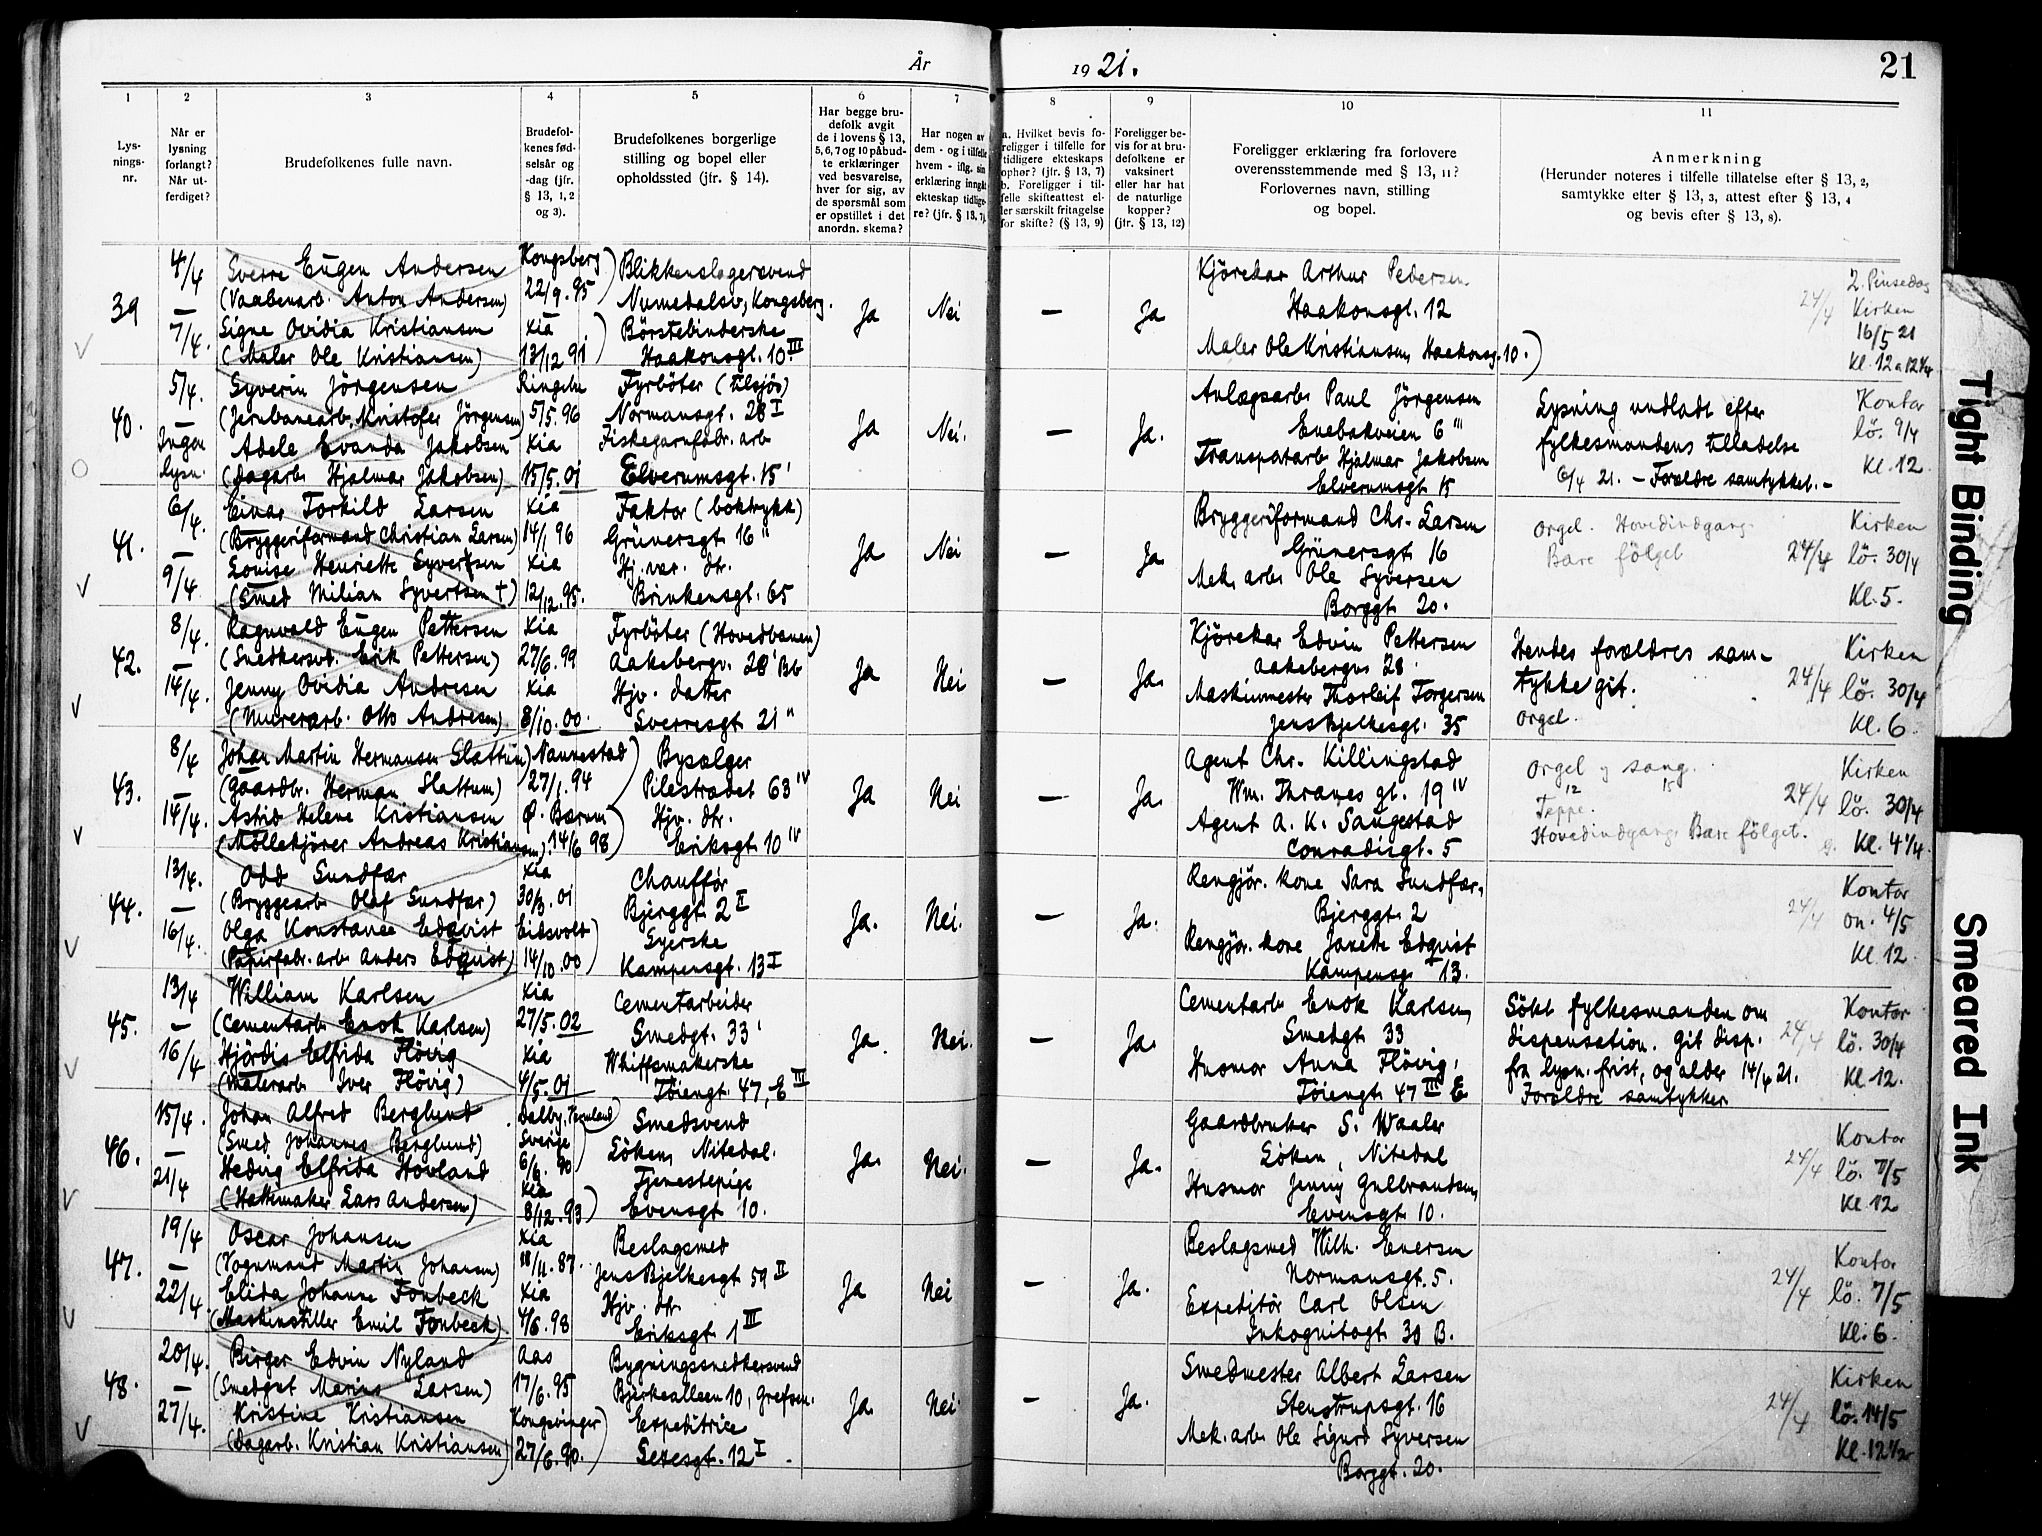 År 1921.
21
1
2
3
4
5
6
7
8
9
10
11
Lysnings-nr.
Når er lysning forlangt? Når utferdiget?
Brudefolkenes fulle navn.
Brudefolkenes fødselsår og -dag (jfr. § 13, 1, 2 og 3).
Brudefolkenes borgerlige stilling og bopel eller opholdssted (jfr. § 14).
Har begge brudefolk avgit de i lovens § 13, 5, 6, 7 og 10 påbudte erklæringer ved besvarelse, hver for sig, av de spørsmål som er opstillet i det anordn. skema?
Har nogen av dem - og i tilfelle hvem - iflg. sin erklæring inngått ekteskap tidligere? (jfr. § 13, 7).
a. Hvilket bevis foreligger i tilfelle for tidligere ekteskaps ophør? (jfr. § 13, 7) b. Foreligger i tilfelle skifteattest eller særskilt fritagelse for skifte? (§ 13, 9)
Foreligger bevis for at brudefolkene er vaksinert eller har hat de naturlige kopper? (jfr. § 13, 12)
Foreligger erklæring fra forlovere overensstemmende med § 13, 11? Forlovernes navn, stilling og bopel.
Anmerkning (Herunder noteres i tilfelle tillatelse efter § 13, 2, samtykke efter § 13, 3, attest efter § 13, 4 og bevis efter § 13, 8).
39
4/4 – 7/4.
Sverre Eugen Andersen
(Vaabenarb. Anton Andersen)
Signe Ovidia Kristiansen
(Maler Ole Kristiansen)
Kongsberg
22/9.95
Kia
13/12.91
Blikkenslagersvend
Numedalsv., Kongsberg.
Børstebinderske
Haakonsgt. 10 III
Ja
Nei
–
Ja
Kjørekar Arthur Pedersen
Haakonsgt. 12
Maler Ole Kristiansen, Haakonsg. 10.)
24/4
2. Pinsedag
Kirken
16/5 21
Kl. 12 a 12 1/4
40.
5/4. – Ingen lysn.
Syverin Jörgensen
(Jernbanearb. Kristofer Jörgensen)
Adele Evanda Jakobsen
(Dagarb. Hjalmar Jakobsen)
5/5.96
Kia
15/5.01
Fyrböter (tilsjös)
Normansgt. 28 I
Fiskegarnfabr. arb
Elverumsgt. 15'
Ja
Nei.
–
Ja.
Anlægsarb. Paul Jörgensen
Enebakveien 6 '''
Transportarb Hjalmar Jakobsen
Elverumsgt 15
Lysning undladt efter
fylkesmandens tilladelse
6/4 21. – Forældre samtykket. –
Kontor
lö. 9/4
Kl. 12
41.
6/4. – 9/4
Einar Torkild Larsen
(Bryggeriformand Christian Larsen)
Louise Henriette Syvertsen
(Smed Milian Syvertsen †)
Kia
14/1 96
Kia
12/12.95.
Faktor (boktrykk)
Grünersgt 16 ''
Hj. vær. dtr.
Brinkensgt. 65
Ja
Nei
–
Ja
Bryggeriformand Chr. Larsen
Grünersgt 16
Mek. arb. Ole Syversen
Borggt 20.
Orgel. Hovedindgang.
Bare fölget
24/4
Kirken
lö. 30/4
Kl. 5.
42.
8/4. – 14/4.
Ragnvald Eugen Pettersen
(Snedkersvd. Erik Pettersen)
Jenny Ovidia Andresen
(Murerarb. Otto Andresen)
Kia
27/6.99
Kia
8/10.00.
Fyrböter (Hovedbanen)
Aakebergv. 28' Bb
Hjv. datter
Sverresgt 21 ''
Ja
Nei
–
Ja.
Kjörekar Edvin Pettersen
Aakebergv. 28.
Maskinmester Thorleif Torgersen
Jens Bjelkesgt. 35
Hendes forældres sam-
tykke git.
Orgel.
24/4
Kirken
lö. 30/4
Kl. 6
43.
8/4 – 14/4.
Johan Martin Hermansen Slattum
(Gaardbr. Herman Slattum)
Astrid Helene Kristiansen
(Möllekjörer Andreas Kristiansen).
Nannestad
27/1.94
Ø. Bærum
14/6 98
Bysælger
Pilestrædet 63 IV
Hjv. dtr.
Eriksgt 10 IV
Ja
Nei
–
Ja.
Agent Chr. Killingstad
Wm. Thranes gt. 19 IV
Agent A. K. Sangestad
Conradisgt. 5
Orgel og sang.
Teppe.
Hovedindgang. Bare fölget.
24/4
Kirken
lö. 30/4
Kl. 4 1/4.
44.
13/4. – 16/4.
Odd Sundfær
(Bryggearb Olaf Sundfær)
Olga Konstanse Edqvist
(Papirfabr. arb Anders Edqvist)
Kia
30/3.01
Eidsvold
14/10.00
Chauffør
Bjerggt. 2 II
Syerske
Kampensgt. 13 I
Ja.
Nei.
–
Ja.
Rengjör. kone Sara Sundfær,
Bjerggt. 2
Rengjör. kone Janette Edqvist
Kampensg 13.
24/4
Kontor
on. 4/5
Kl. 12
45.
13/4 – 16/4
William Karlsen
(Cementarb Enok Karlsen)
Hjördis Elfrida Flövig
(Malerarb Iver Flövig)
Kia
27/5.02
Kia
4/5.01
Cementarbeider
Smedgt. 33'
Whiffsmakerske
Töiengt. 47, E III
Ja.
Nei.
–
Ja.
Cementarb Enok Karlsen,
Smedgt 33
Husmor Anna Flövig,
Töiengt 47 III E
Sökt fylkesmanden om
dispensation. Git disp.
fra lysn. frist, og alder 14/4 21.
Forældre samtykker
24/4
Kontor
lö. 30/4
Kl 12.
46.
15/4. – 21/4
Johan Alfred Berglund
(Smed Johannes Berglund)
Hedvig Elfrida Hovland
(Hattemaker Lars Andersen)
Dalby, Vermland
Sverige
6/6.90
Kia
8/12.93
Smedsvend
Söken, Nitedal.
Tjenestepige
Evensgt 10.
Ja.
Nei.
–
Ja.
Gaardbruker S. Waaler
Söken, Nitedal
Husmor Jenny Gulbrandsen,
Evensgt 10.
24/4
Kontor
lö. 7/5
Kl 12
47.
19/4 – 22/4
Oscar Johansen
(Vognmand Martin Johansen)
Elida Johanne Fonbeck
(Maskinstiller Emil Fonbeck)
Kia
18/11.87.
Kia
4/6.98
Beslagsmed
Jens Bjelkesgt 59 II
Hjv. dtr.
Eriksgt. 1 III
Ja
Nei
–
Ja.
Beslagsmed Wilh. Evensen
Normansgt. 5.
Expeditör Carl Olsen
Inkognitogt 30 B.
24/4
Kontor
lö. 7/5
Kl. 6.
48.
20/4. – 27/4.
Birger Edvin Nyland
(Smedgst Marius Larsen)
Kristine Kristiansen
(Dagarb. Kristian Kristiansen)
Aas
17/6.95
Kongsvinger
27/6.90.
Bygningssnedkersvend
Bjerkealleen 10, Grefsen.
Expeditrice
Sexesgt. 12 I
Ja.
Nei.
–
Ja.
Smedmester Albert Larsen
Stenstrupsgt. 16
Mek. arb. Ole Sigurd Syversen
Borggt. 20.
24/4
Kirken
lö. 14/5
Kl. 12 1/2
Tight Binding
Smeared Ink